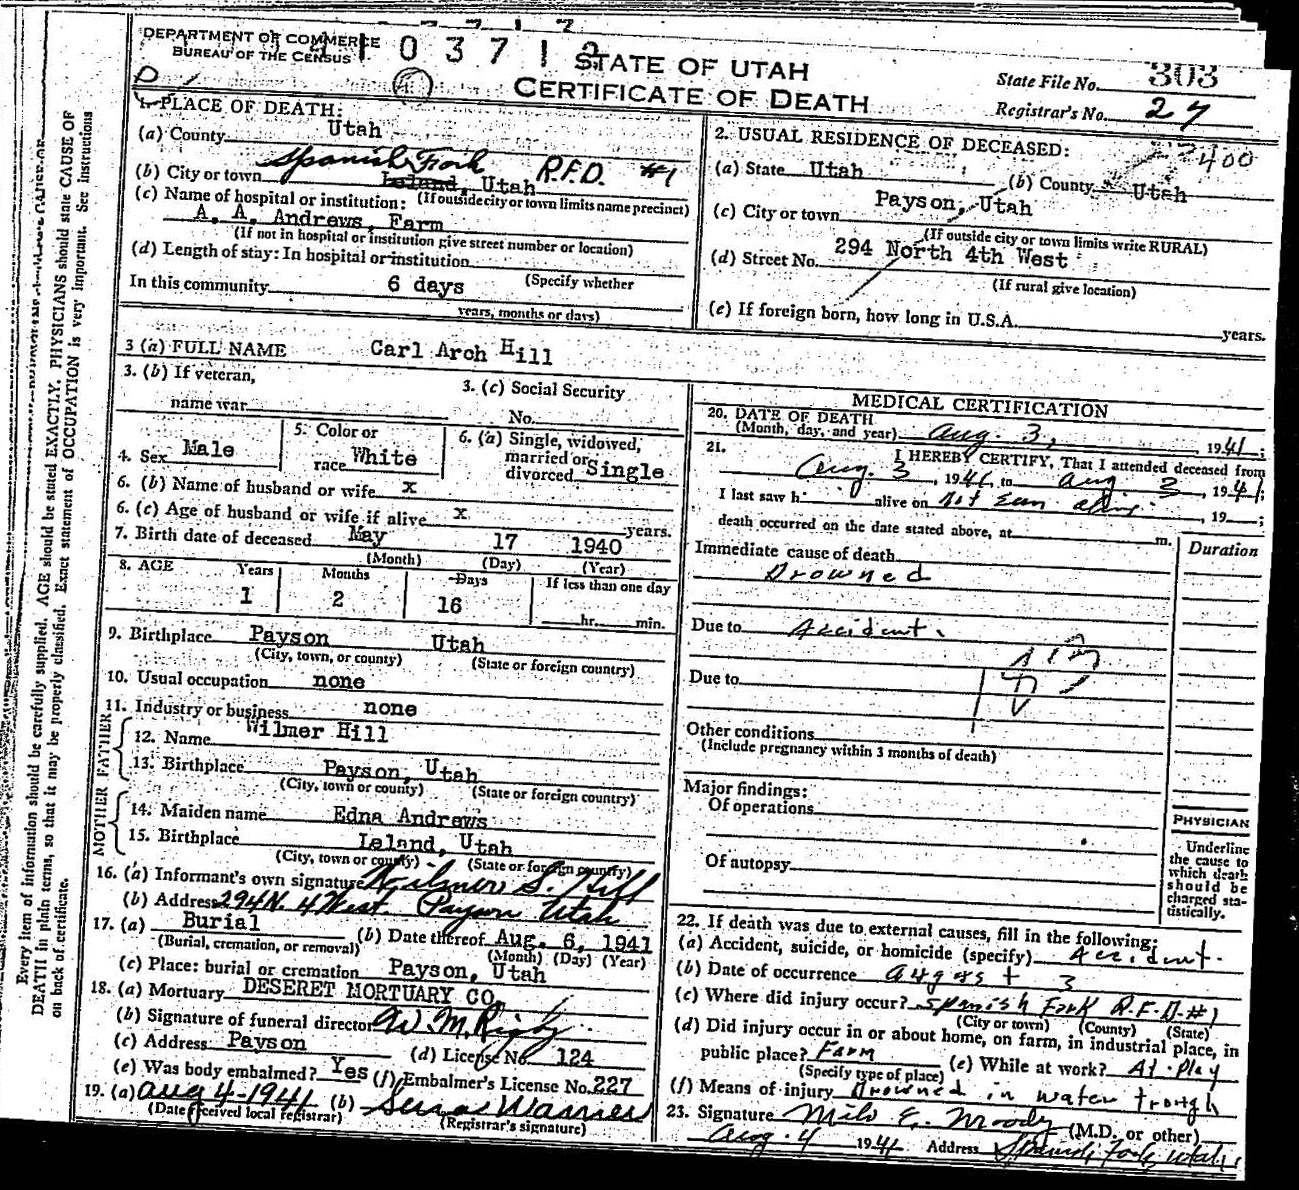 DEPARTMENT OF COMMERCE
BUREAU OF THE CENSUS
0 3 7 1
STATE OF UTAH
CERTIFICATE OF DEATH
State File No. 303
Registrar's No. 27
1. PLACE OF DEATH:
(a) County Utah
Spanish Fork R.F.D. #1
(b) City or town Leland, Utah
(If outside city or town limits name precinct)
(c) Name of hospital or institution:
A. A. Andrews Farm
(If not in hospital or institution give street number or location)
(d) Length of stay: In hospital or institution
(Specify whether
In this community 6 days
years, months or days)
2. USUAL RESIDENCE OF DECEASED:
400
(a) State Utah (b) County Utah
(c) City or town Payson, Utah
(If outside city or town limits write RURAL)
(d) Street No. 294 North 4th West
(If rural give location)
(e) If foreign born, how long in U.S.A. years.
3 (a) FULL NAME Carl Arch Hill
3. (b) If veteran,
name war
3. (c) Social Security
No.
4. Sex Male
5. Color or
race White
6. (a) Single, widowed,
married or
divorced Single
6. (b) Name of husband or wife x
6. (c) Age of husband or wife if alive x years.
7. Birth date of deceased May 17 1940
(Month) (Day) (Year)
8. AGE Years Months Days If less than one day
1 2 16 hr. min.
9. Birthplace Payson Utah
(City, town, or county) (State or foreign country)
10. Usual occupation none
11. Industry or business none
FATHER
12. Name Wilmer Hill
13. Birthplace Payson, Utah
(City, town or county) (State or foreign country)
MOTHER
14. Maiden name Edna Andrews
15. Birthplace Leland, Utah
(City, town or county) (State or foreign country)
16. (a) Informant's own signature Wilmer S. Hill
(b) Address 294 N. 4 West. Payson Utah
17. (a) Burial (b) Date thereof Aug. 6, 1941
(Burial, cremation, or removal) (Month) (Day) (Year)
(c) Place: burial or cremation Payson, Utah
18. (a) Mortuary DESERET MORTUARY CO.
(b) Signature of funeral director W. M. Rigby
(c) Address Payson (d) License No. 124
(e) Was body embalmed? Yes (f) Embalmer's License No. 227
19. (a) Aug 4-1941 (b)
(Date received local registrar) (Registrar's signature)
MEDICAL CERTIFICATION
20. DATE OF DEATH
(Month, day, and year) Aug. 3, 1941;
21. I HEREBY CERTIFY, That I attended deceased from
Aug. 3, 1941, to Aug 3, 1941;
I last saw h alive on Not seen alive, 19 ;
death occurred on the date stated above, at m.
Duration
Immediate cause of death
Drowned
Due to Accident.
Due to
Other conditions
(Include pregnancy within 3 months of death)
Major findings:
Of operations
Of autopsy
PHYSICIAN
Underline
the cause to
which death
should be
charged sta-
tistically.
22. If death was due to external causes, fill in the following:
(a) Accident, suicide, or homicide (specify) Accident.
(b) Date of occurrence August 3
(c) Where did injury occur? Spanish Fork R.F.D. #1
(City or town) (County) (State)
(d) Did injury occur in or about home, on farm, in industrial place, in
public place? Farm (e) While at work? At Play
(Specify type of place)
(f) Means of injury Drowned in water trough
23. Signature Milo E. Moody (M.D. or other)
Aug. 4 1941 Address Spanish Fork, Utah
Every item of information should be carefully supplied. AGE should be stated EXACTLY. PHYSICIANS should state CAUSE OF
DEATH in plain terms, so that it may be properly classified. Exact statement of OCCUPATION is very important. See instructions
on back of certificate.